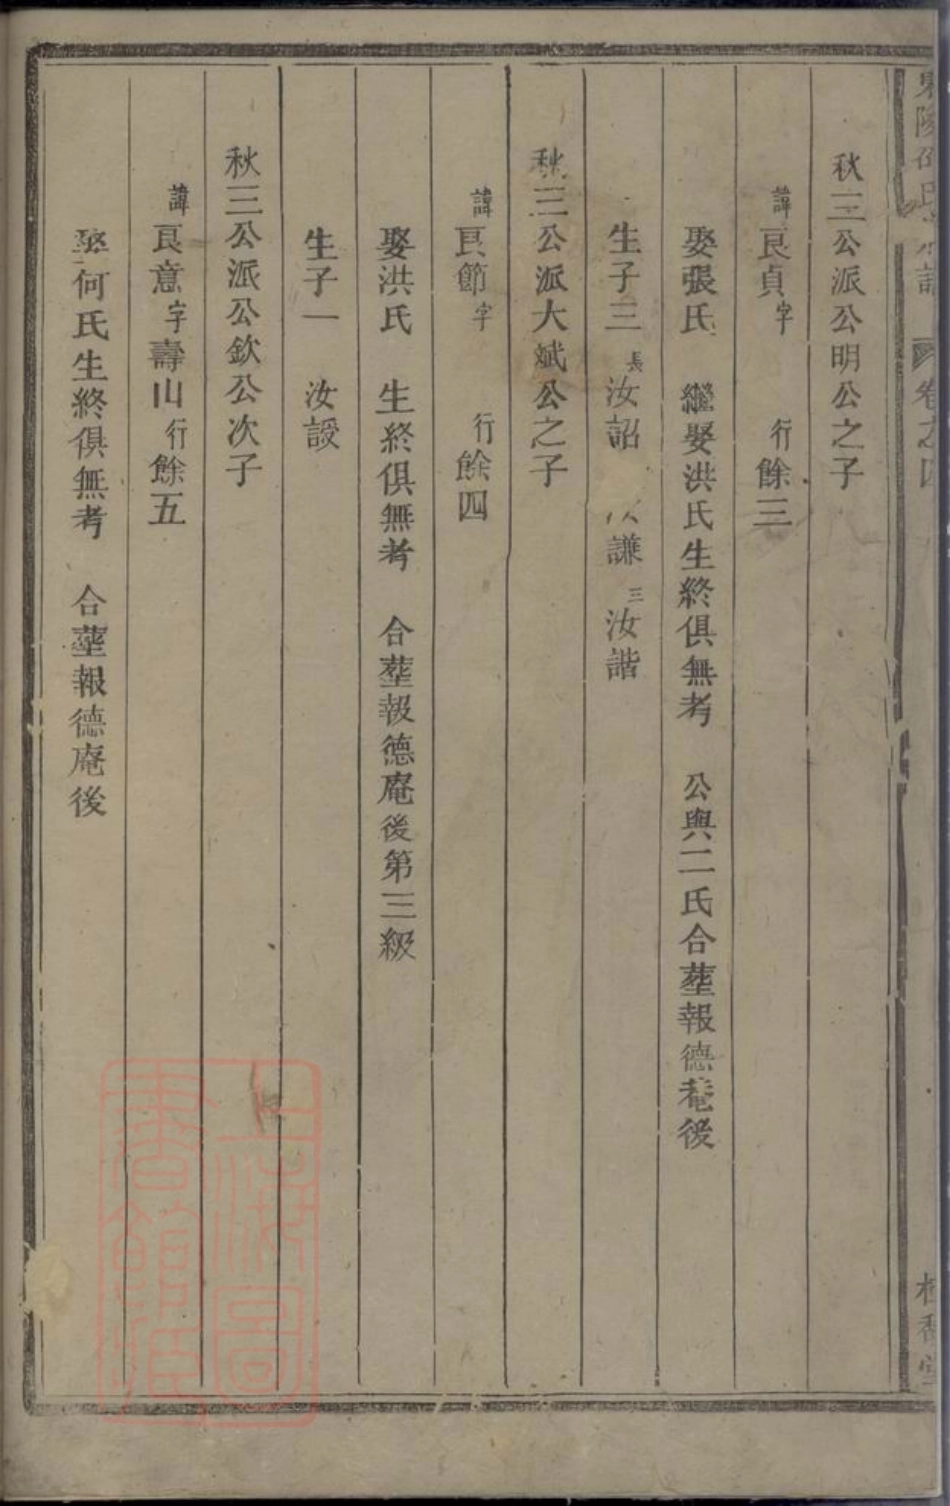 秋三公派公明公之子
諱良貞字 行餘三
娶張氏 繼娶洪氏生終俱無考 公與二氏合塟報德菴後
生子三 長汝詔 謙 三汝諧
秋三公派大斌公之子
諱良節字 行餘四
娶洪氏 生終俱無考 合塟報德庵後第三級
生子一 汝諼
秋三公派公欽公次子
諱良意字壽山行餘五
娶何氏生終俱無考 合塟報德庵後
卷之四
上海圖書館藏